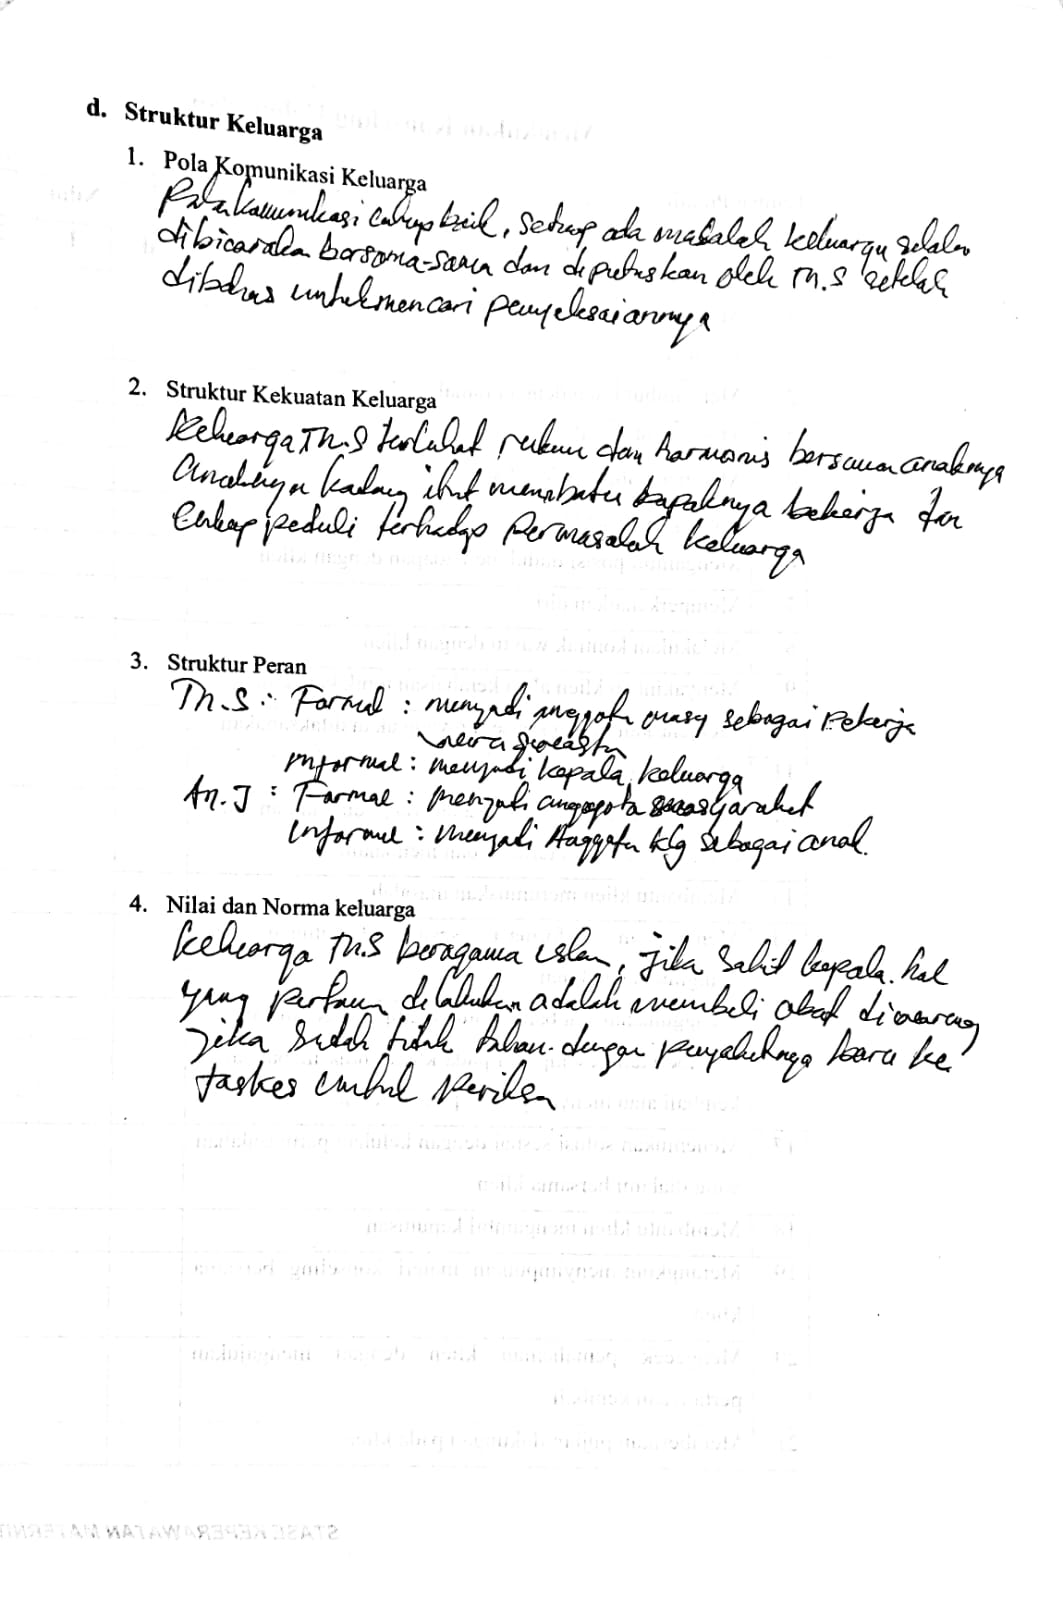 d. Struktur Keluarga
1. Pola Komunikasi Keluarga
Pola komunikasi cukup baik, setiap ada masalah keluarga selalu
dibicaraka bersama-sama dan diputuskan oleh Tn.S setelah
dibahas untuk mencari penyelesaiannya
2. Struktur Kekuatan Keluarga
Keluarga Tn.S terlihat rukun dan harmonis bersama anaknya
anaknya kadang ikut membatu bapaknya bekerja dan
cukup peduli terhadap permasalah keluarga
3. Struktur Peran
Tn.S : Formal : menjadi anggota masy sebagai Pekerja
wiraswasta
Informal : menjadi kepala keluarga
An.J : Formal : menjadi anggota masyarakat
Informal : menjadi Anggota klg sebagai anak.
4. Nilai dan Norma keluarga
Keluarga Tn.S beragama islam, jika sakit kepala. hal
yang pertama dilakukan adalah membeli obat diwarung
jika sudah tidak tahan dengan penyakitnya baru ke
faskes untuk periksa